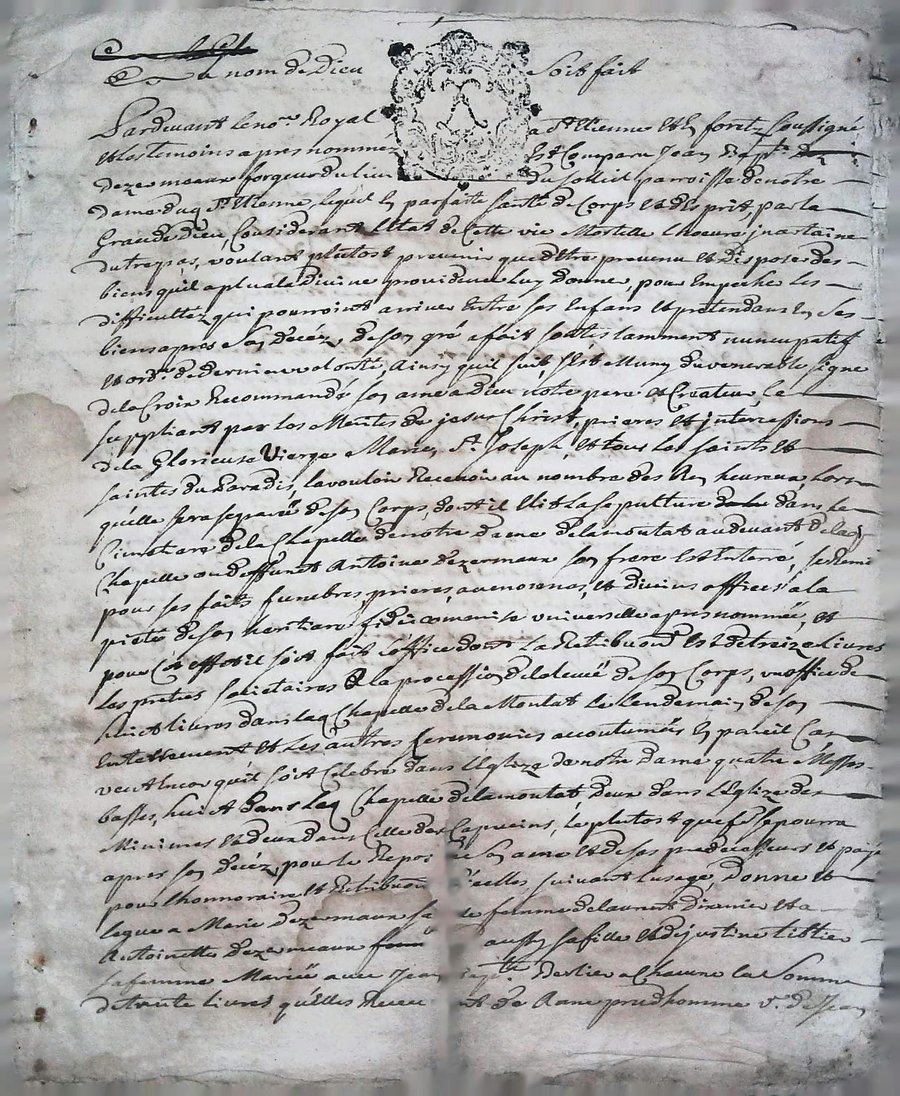 Au nom de Dieu soit fait
Pardevant le no.re Royal a St Etienne et en foretz soussigné
et les temoins apres nommes Est Comparu Jean Bap.te
dezermeaux forgeur du lieu du soleil parroisse de notre
dame dud St Etienne, lequel en parfaite santé de Corps et desprit, par la
Grace de dieu, Considerant l'Etat de Cette vie Mortelle lheure jncertaine
du trepas, voulant plutost prevenir que d'Etre prevenu et disposer des
biens quil a plu a la divine providence luy donner, pour Empecher les
difficultéz qui pourroient arriver Entre ses Enfans et pretendans En ses
biens apres son decéz, de son gré a fait son testamment nuncupatif
et ord.e de derniere volonté, Ainsy quil suit, sest Muny du venerable signe
de la Croix Recommandé son ame a dieu notre pere et Createur le
suppliant par les Merites de jesus Christ, prieres et jntercessions
de la Glorieuse Vierge Marie, St Joseph, et tous les saints et
saintes du Paradis, la vouloir Recevoir au nombre des Bien heureux lors
quelle sera separée de son Corps, dont il Elit la sepulture dans le
Cimetiere de la Chapelle de notre dame de la montat audevant de lad
Chapelle ou deffunt Antoine dezermeaux son frere est Enterré, se Remi
pour ses faits funebres, prieres, aumones, et divins offices a la
pieté de son heritiere fideicomise universelle apres nommée, et
pour Cet effet il soit fait l'office dont la Retribuon Est de treize livres
les pretres societaires a la procession de la levée de son Corps, un office de
huict livres dans lad Chapelle de la Montat le lendemain de son
Enterrement et les autres Ceremonies accoutumées En pareil Cas
veut Encor quil soit Celebré dans l'Eglize de notre dame quatre Messes
basses, huict dans lad Chapelle de la montat, deux dans l'Eglize des
Minimes et deux dans Celle des Capucins, le plutost que fe se pourra
apres son decéz, pour le Repos de son ame et de ses predecesseurs et payé
pour l'honnoraire et Retribuon d'icelles suivant lusage, donne et
legue a Marie dezermeaux sa fille femme de laurent et a
Antoinette dezermeaux aussy sa fille et de justine tiblier
sa femme Mariée avec Jean Bap.te Berlier a Chacune la somme
de trente livres qu'elles Recev de Rane prudhomme v.e de Jean